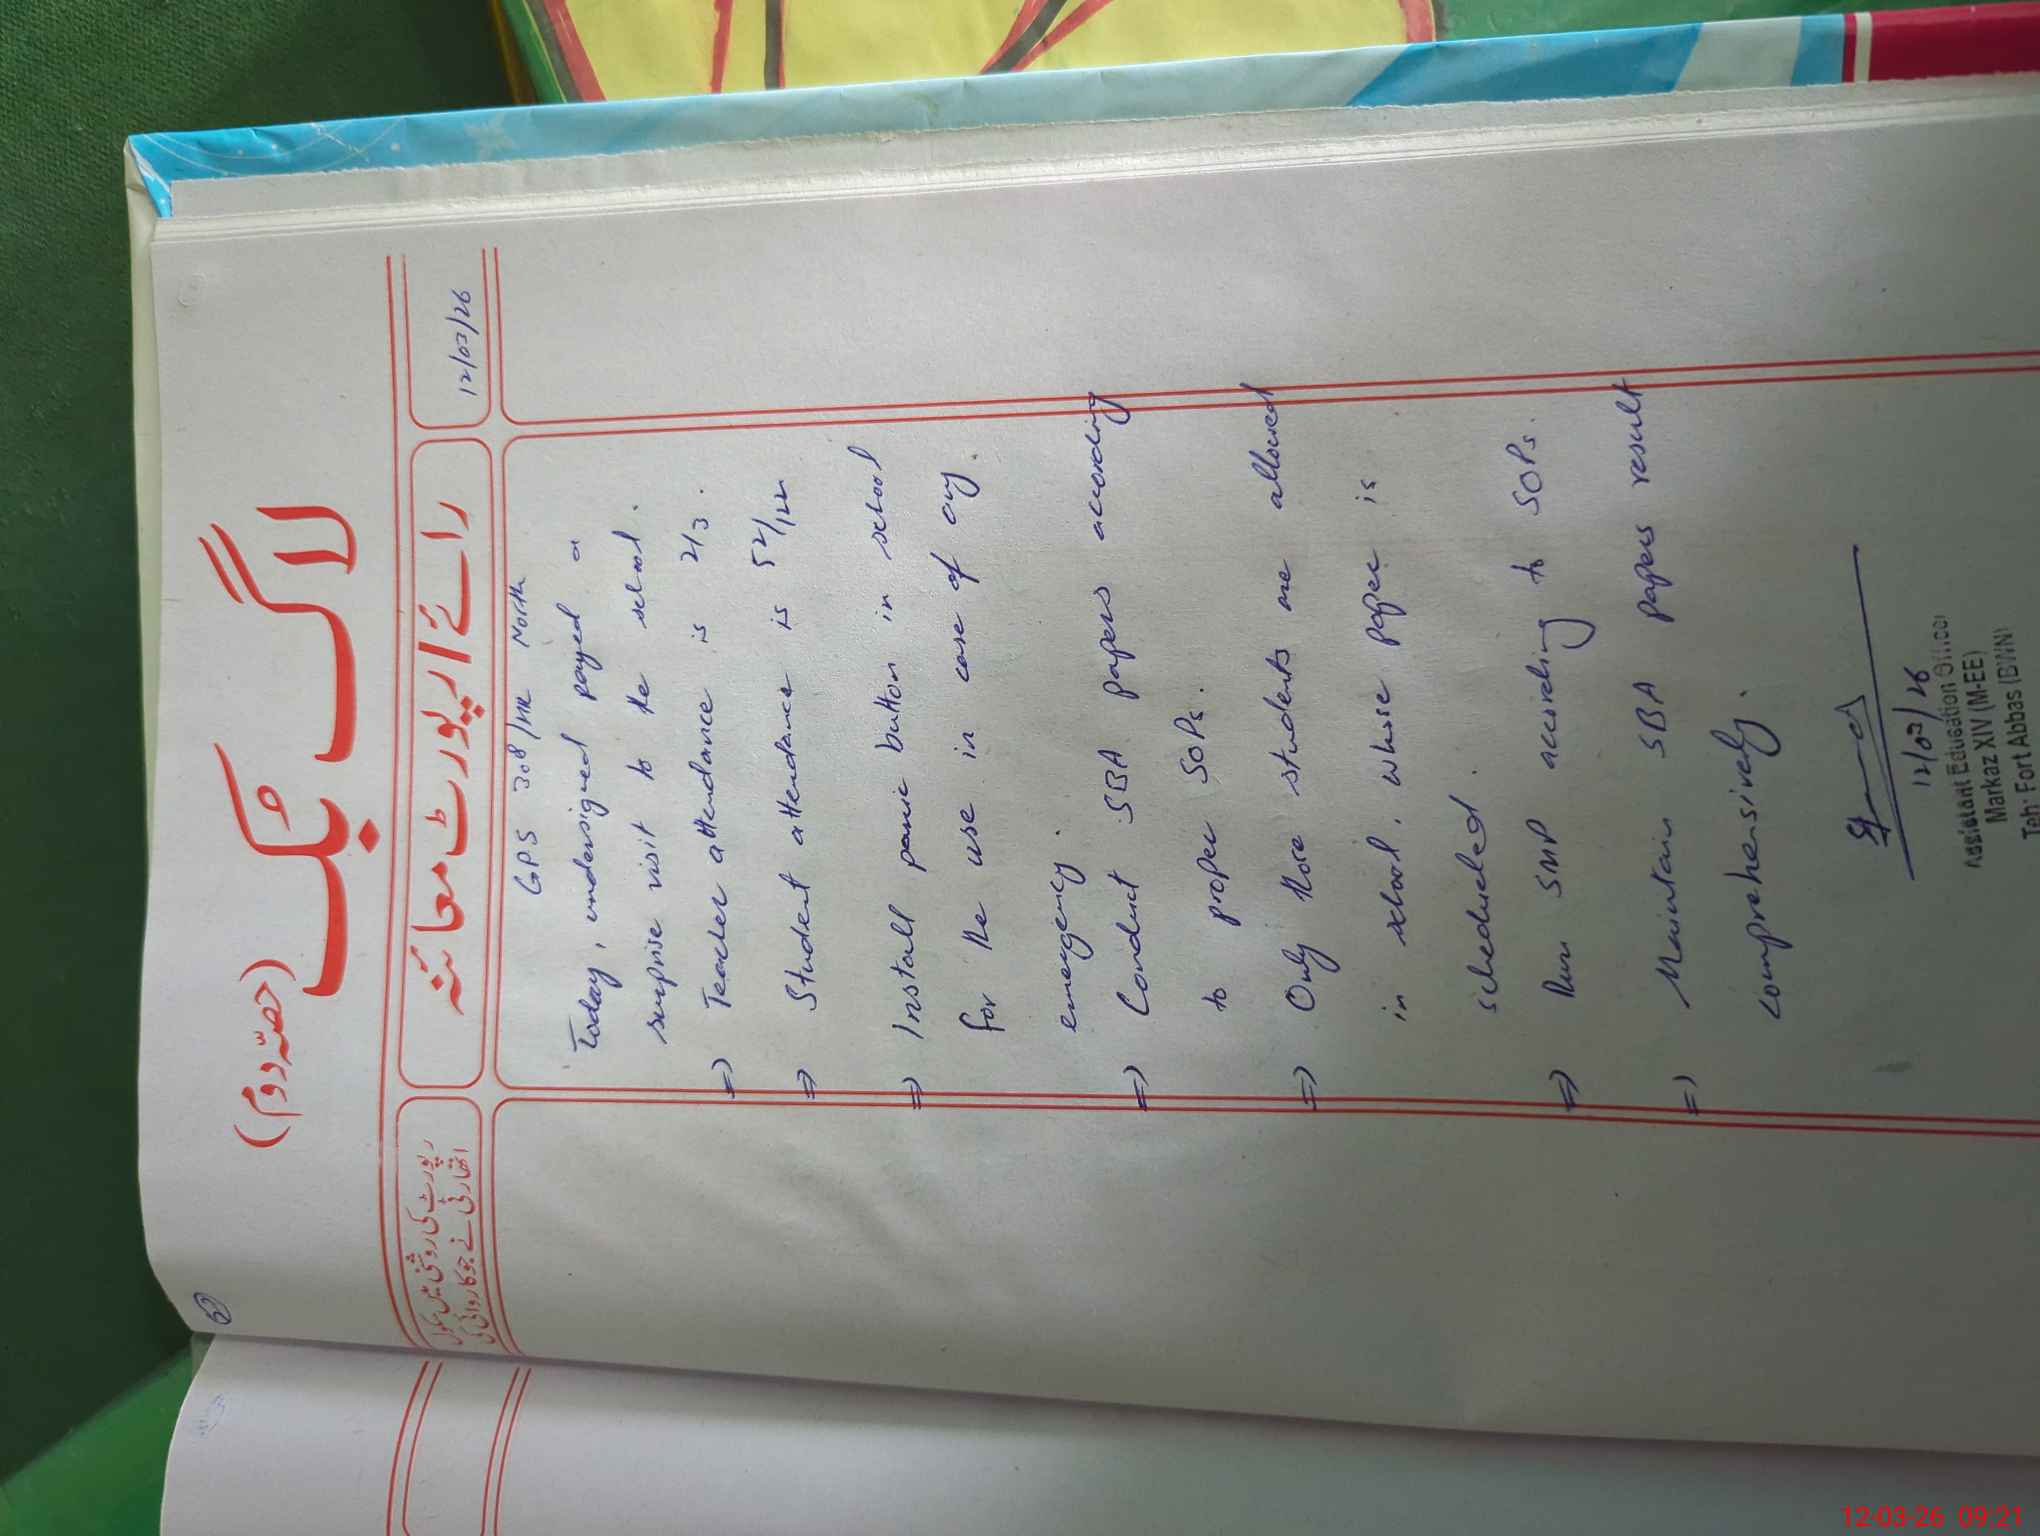 (حصّہ دوم)
لاگ بُک
رپورٹ کی روشنی میں سکول
اتھارٹی نے جو کاروائی کی
رائے / رپورٹ معائنہ
12/03/26
GPS 308/HR North
Today, undersigned payed a
surprise visit to the school.
⇒ Teacher attendance is 2/3.
⇒ Student attendance is 52/122
⇒ Install panic button in school
for the use in case of any
emergency.
⇒ Conduct SBA papers according
to proper SOPs.
⇒ Only those students are allowed
in school, whose paper is
scheduled.
⇒ Run SMP according to SOPs.
⇒ Maintain SBA papers result
comprehensively.
12/03/26
Assistant Education Officer
Markaz XIV (M-EE)
Teh: Fort Abbas (BWN)
12-03-26 09:21